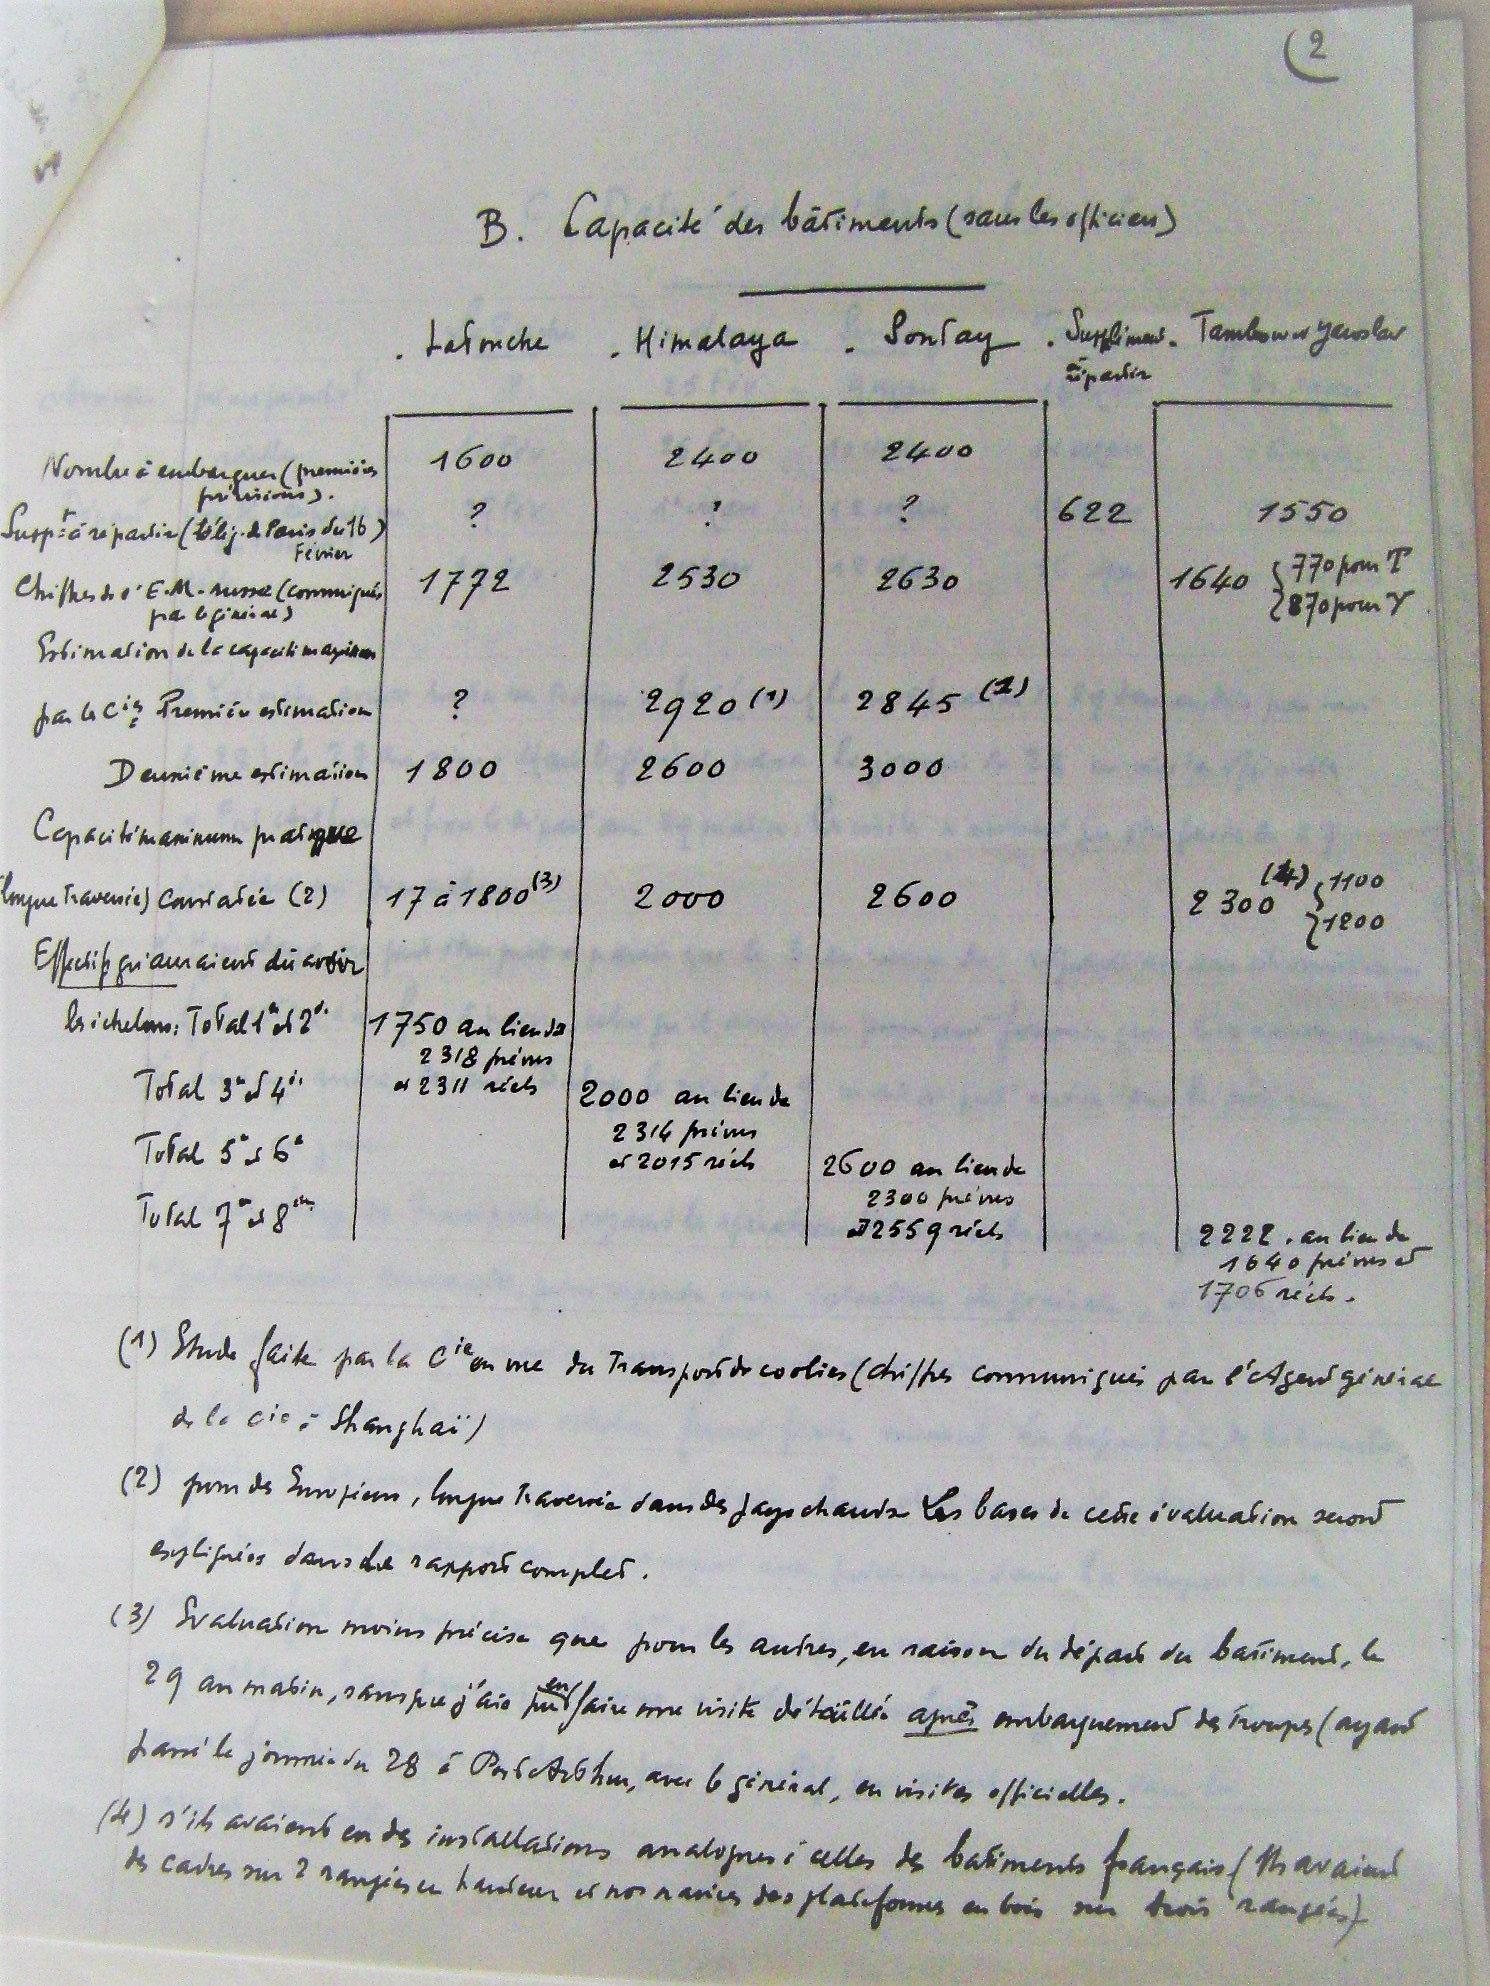 (2
B. Capacité des bâtiments (sans les officiers)
. Latouche . Himalaya . Sontay . Supplément . Tambow et Yaroslav
à répartir
Nombre à embarquer (premières 1600 2400 2400
prévisions).
Suppt à répartir (télég. de Paris du 16 ? ? ? 622 1550
Février)
Chiffres de l'E.M. russe (communiqués 1772 2530 2630 1640 { 770 pour T
par le général) { 870 pour Y
Estimation de la capacité maximum
par la Cie: Première estimation ? 2920 (1) 2845 (1)
Deuxième estimation 1800 2600 3000
Capacité maximum pratique
(longue traversée) constatée (2) 17 à 1800 (3) 2000 2600 2300 (4) { 1100
{ 1200
Effectifs qu'auraient dû avoir
les échelons: Total 1er et 2e. 1750 au lieu de
2318 prévus
Total 3e et 4e. et 2311 réels 2000 au lieu de
2314 prévus
Total 5e et 6e et 2015 réels 2600 au lieu de
2300 prévus
Total 7e et 8em et 2559 réels 2222 . au lieu de
1640 prévus et
1706 réels.
(1) Etude faite par la Cie en vue du transport de coolies (chiffres communiqués par l'Agent général
de la Cie à Shanghaï)
(2) pour des Européens, longue traversée dans des pays chauds. Les bases de cette évaluation seront
expliquées dans le rapport complet.
(3) Evaluation moins précise que pour les autres, en raison du départ du bâtiment, le
29 au matin, sans que j'aie pu en faire une visite détaillée après embarquement des troupes (ayant
passé la journée du 28 à Port Arthur, avec le général, en visites officielles.
(4) s'ils avaient eu des installations analogues à celles des bâtiments français (Ils avaient
des cadres sur 2 rangées en hauteur et nos navires des plateformes en bois sur trois rangées)